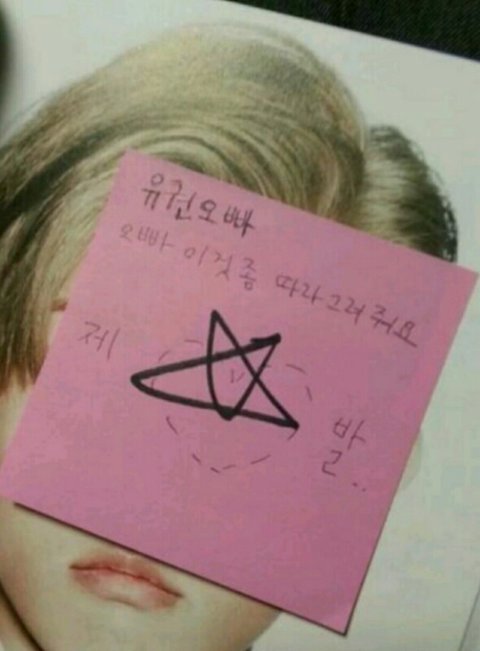 유권오빠
오빠 이것좀 따라그려줘요
제
발..